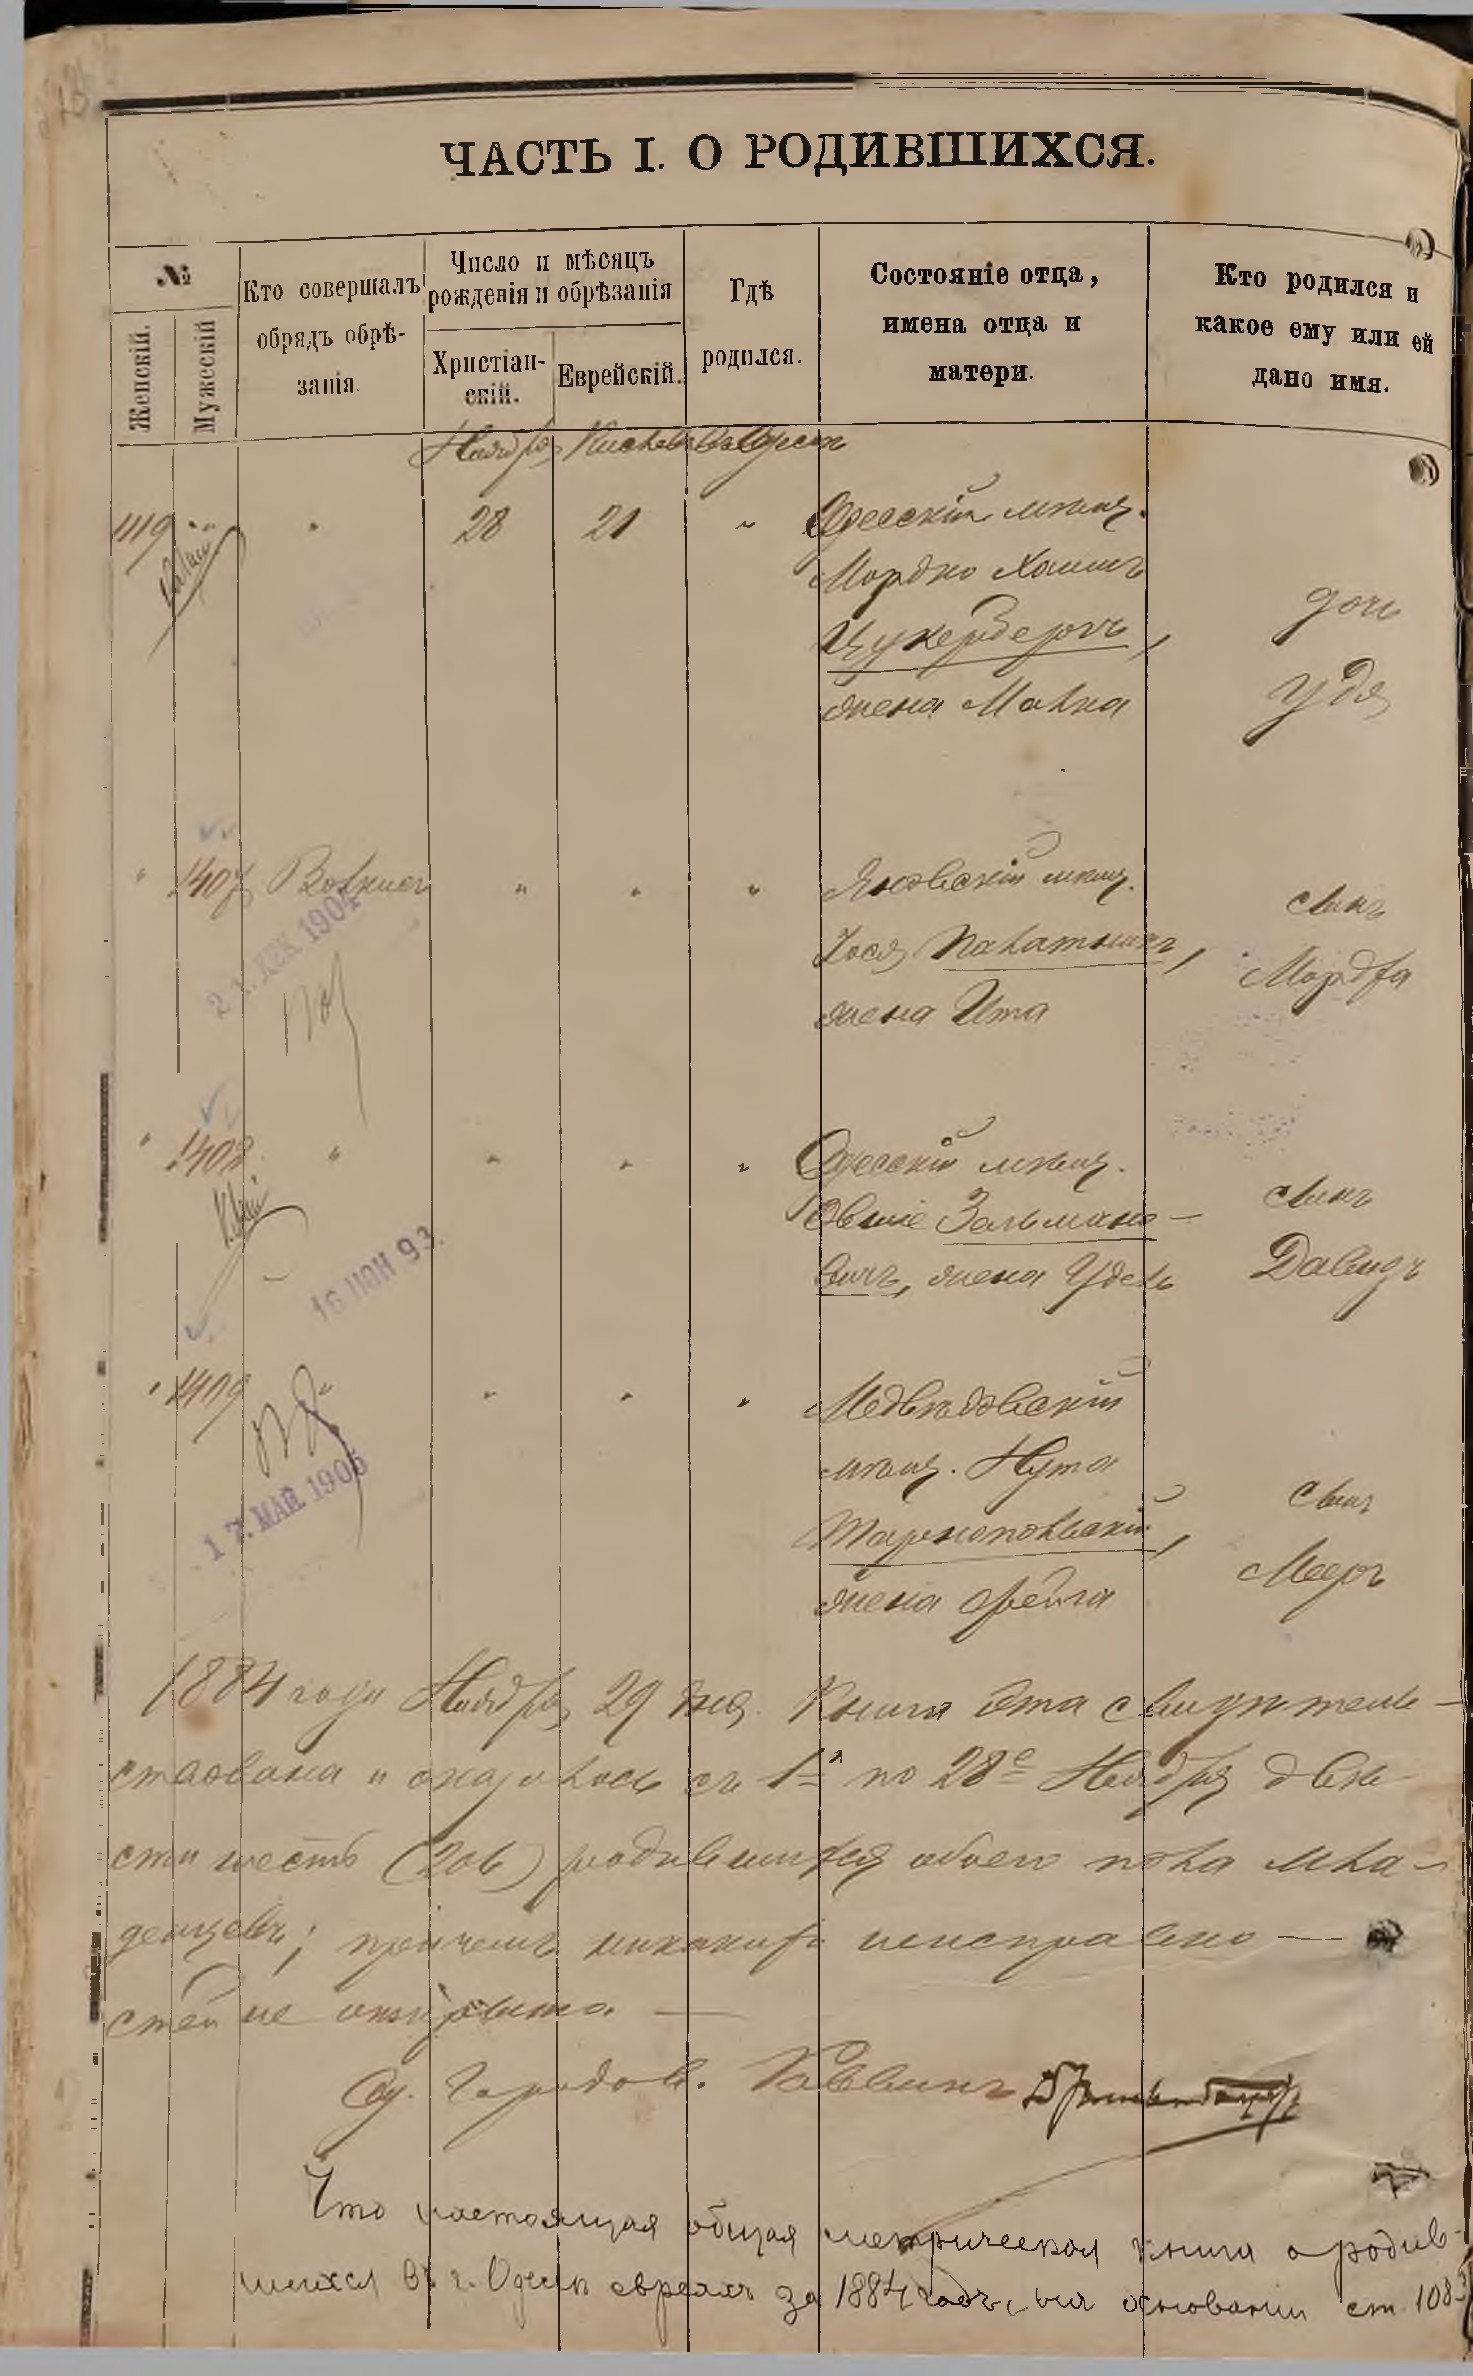 ЧАСТЬ I. О РОДИВШИХСЯ.
№
Женскій.
Мужескій
Кто совершалъ
обрядъ обрѣ-
занія.
Число и мѣсяцъ
рожденія и обрѣзанія
Христіан-
скій.
Еврейскій.
Гдѣ
родился.
Состояніе отца,
имена отца и
матери.
Кто родился и
какое ему или ей
дано имя.
Ноября Кислева Въ Одессѣ
1119 " " 28 21 " Одесскій мѣщ.
Мордко Хаимъ
Цукербергъ,
жена Малка
дочь
Удя
" 1407 " " " Яновскій мѣщ.
Іося Палатникъ,
жена Ита
сынъ
Мордха
21. ДЕК 1904
" 1408 " " " " Одесскій мѣщ.
Овшіе Зельмано-
вичъ, жена Удель
сынъ
Давидъ
16 ІЮН 93.
" 1409 " " " " Медвѣдовскій
мѣщ. Нута
Тарнопольскій,
жена Фейга
сынъ
Мееръ
17. МАЙ 1905
1884 года Ноября 29 дня. Книга эта свидѣтель-
ствована и оказалось съ 1го по 28е Ноября двѣ-
сти шесть (206) родившихся обоего пола мла-
денцевъ; причемъ никакихъ неисправно-
стей не открыто.
Од. Городов. Раввинъ
Что настоящая общая метрическая книга о родив-
шихся въ г. Одессѣ евреяхъ за 1884 годъ, на основаніи ст. 108